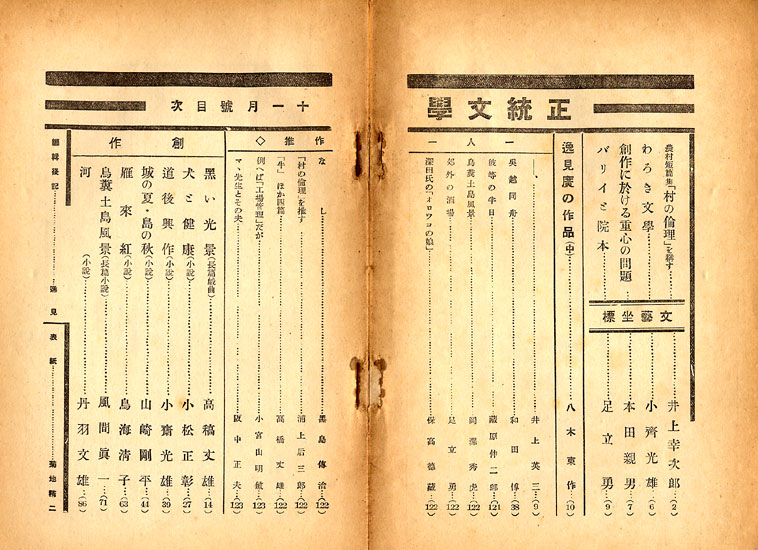 正統文學
農村短篇集「村の倫理」を稱す……井上幸次郎…(2)
わろき文學……小齊光雄…(6)
創作に於ける重心の問題……本田親男…(7)
バリイと院本……足立勇…(9)
文藝坐標
逸見廣の作品(中)……八木東作…(10)
一人一
……井上英三…(9)
吳越同舟……和田傳…(38)
彼等の半日……藏原伸二郎…(121)
鳥糞土島風景……岡澤秀虎…(122)
郊外の酒場……足立勇…(122)
深田氏の『オロツコの娘』……保高德藏…(122)
十一月號目次
作推◇
なし……黑島傳治…(122)
『村の倫理』を推す……浦上后三郎…(122)
「牛」ほか四篇……高橋丈雄…(122)
例へば『工場管理』だが……小宮山明敏…(123)
マン先生とその犬……阪中正夫…(123)
創作
黑い光景(長篇戲曲)……高橋丈雄…(14)
犬と健康(小說)……小松正彰…(27)
道後興作(小說)……小齋光雄…(39)
城の夏・島の秋(小說)……山崎剛平…(44)
雁來紅(小說)……鳥海清子…(63)
鳥糞土島風景(長篇小說)……風間眞一…(71)
河(小說)……丹羽文雄…(86)
編輯後記……逸見
表紙……菊地精二